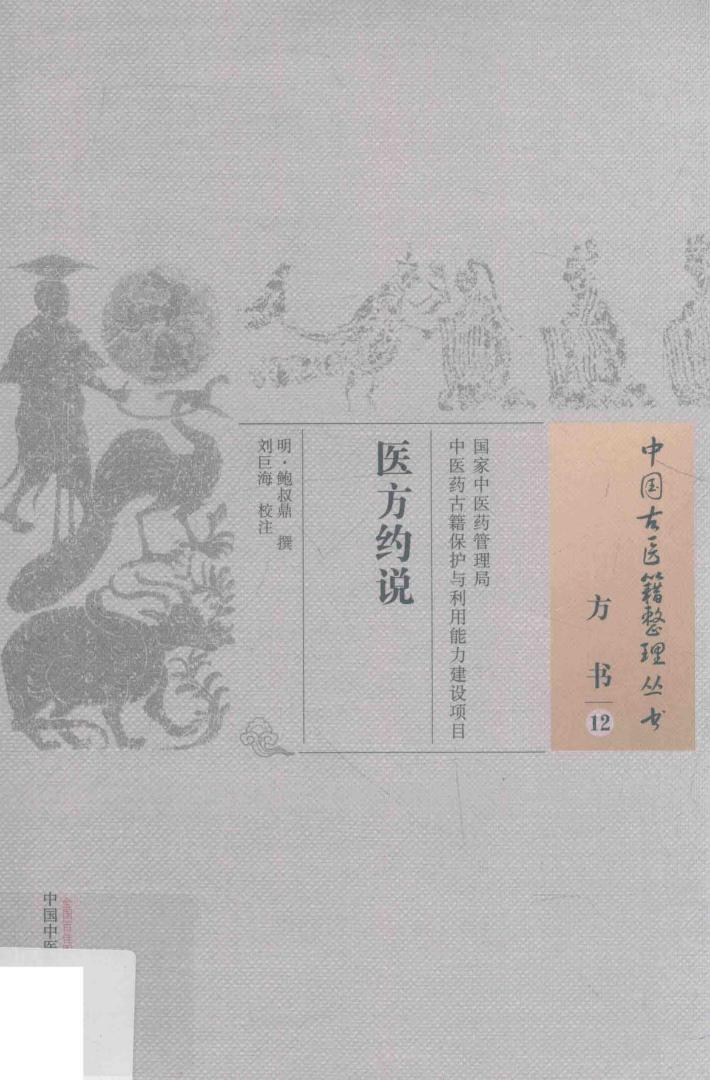 中国古医籍整理丛书
方书
12
国家中医药管理局
中医药古籍保护与利用能力建设项目
医方约说
明·鲍叔鼎 撰
刘巨海 校注
全国百佳
中国中医